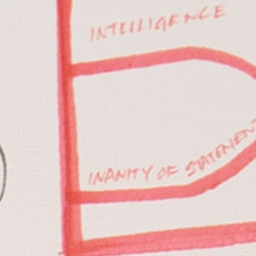 INTELLIGENCE
INANITY OF STATEMENT